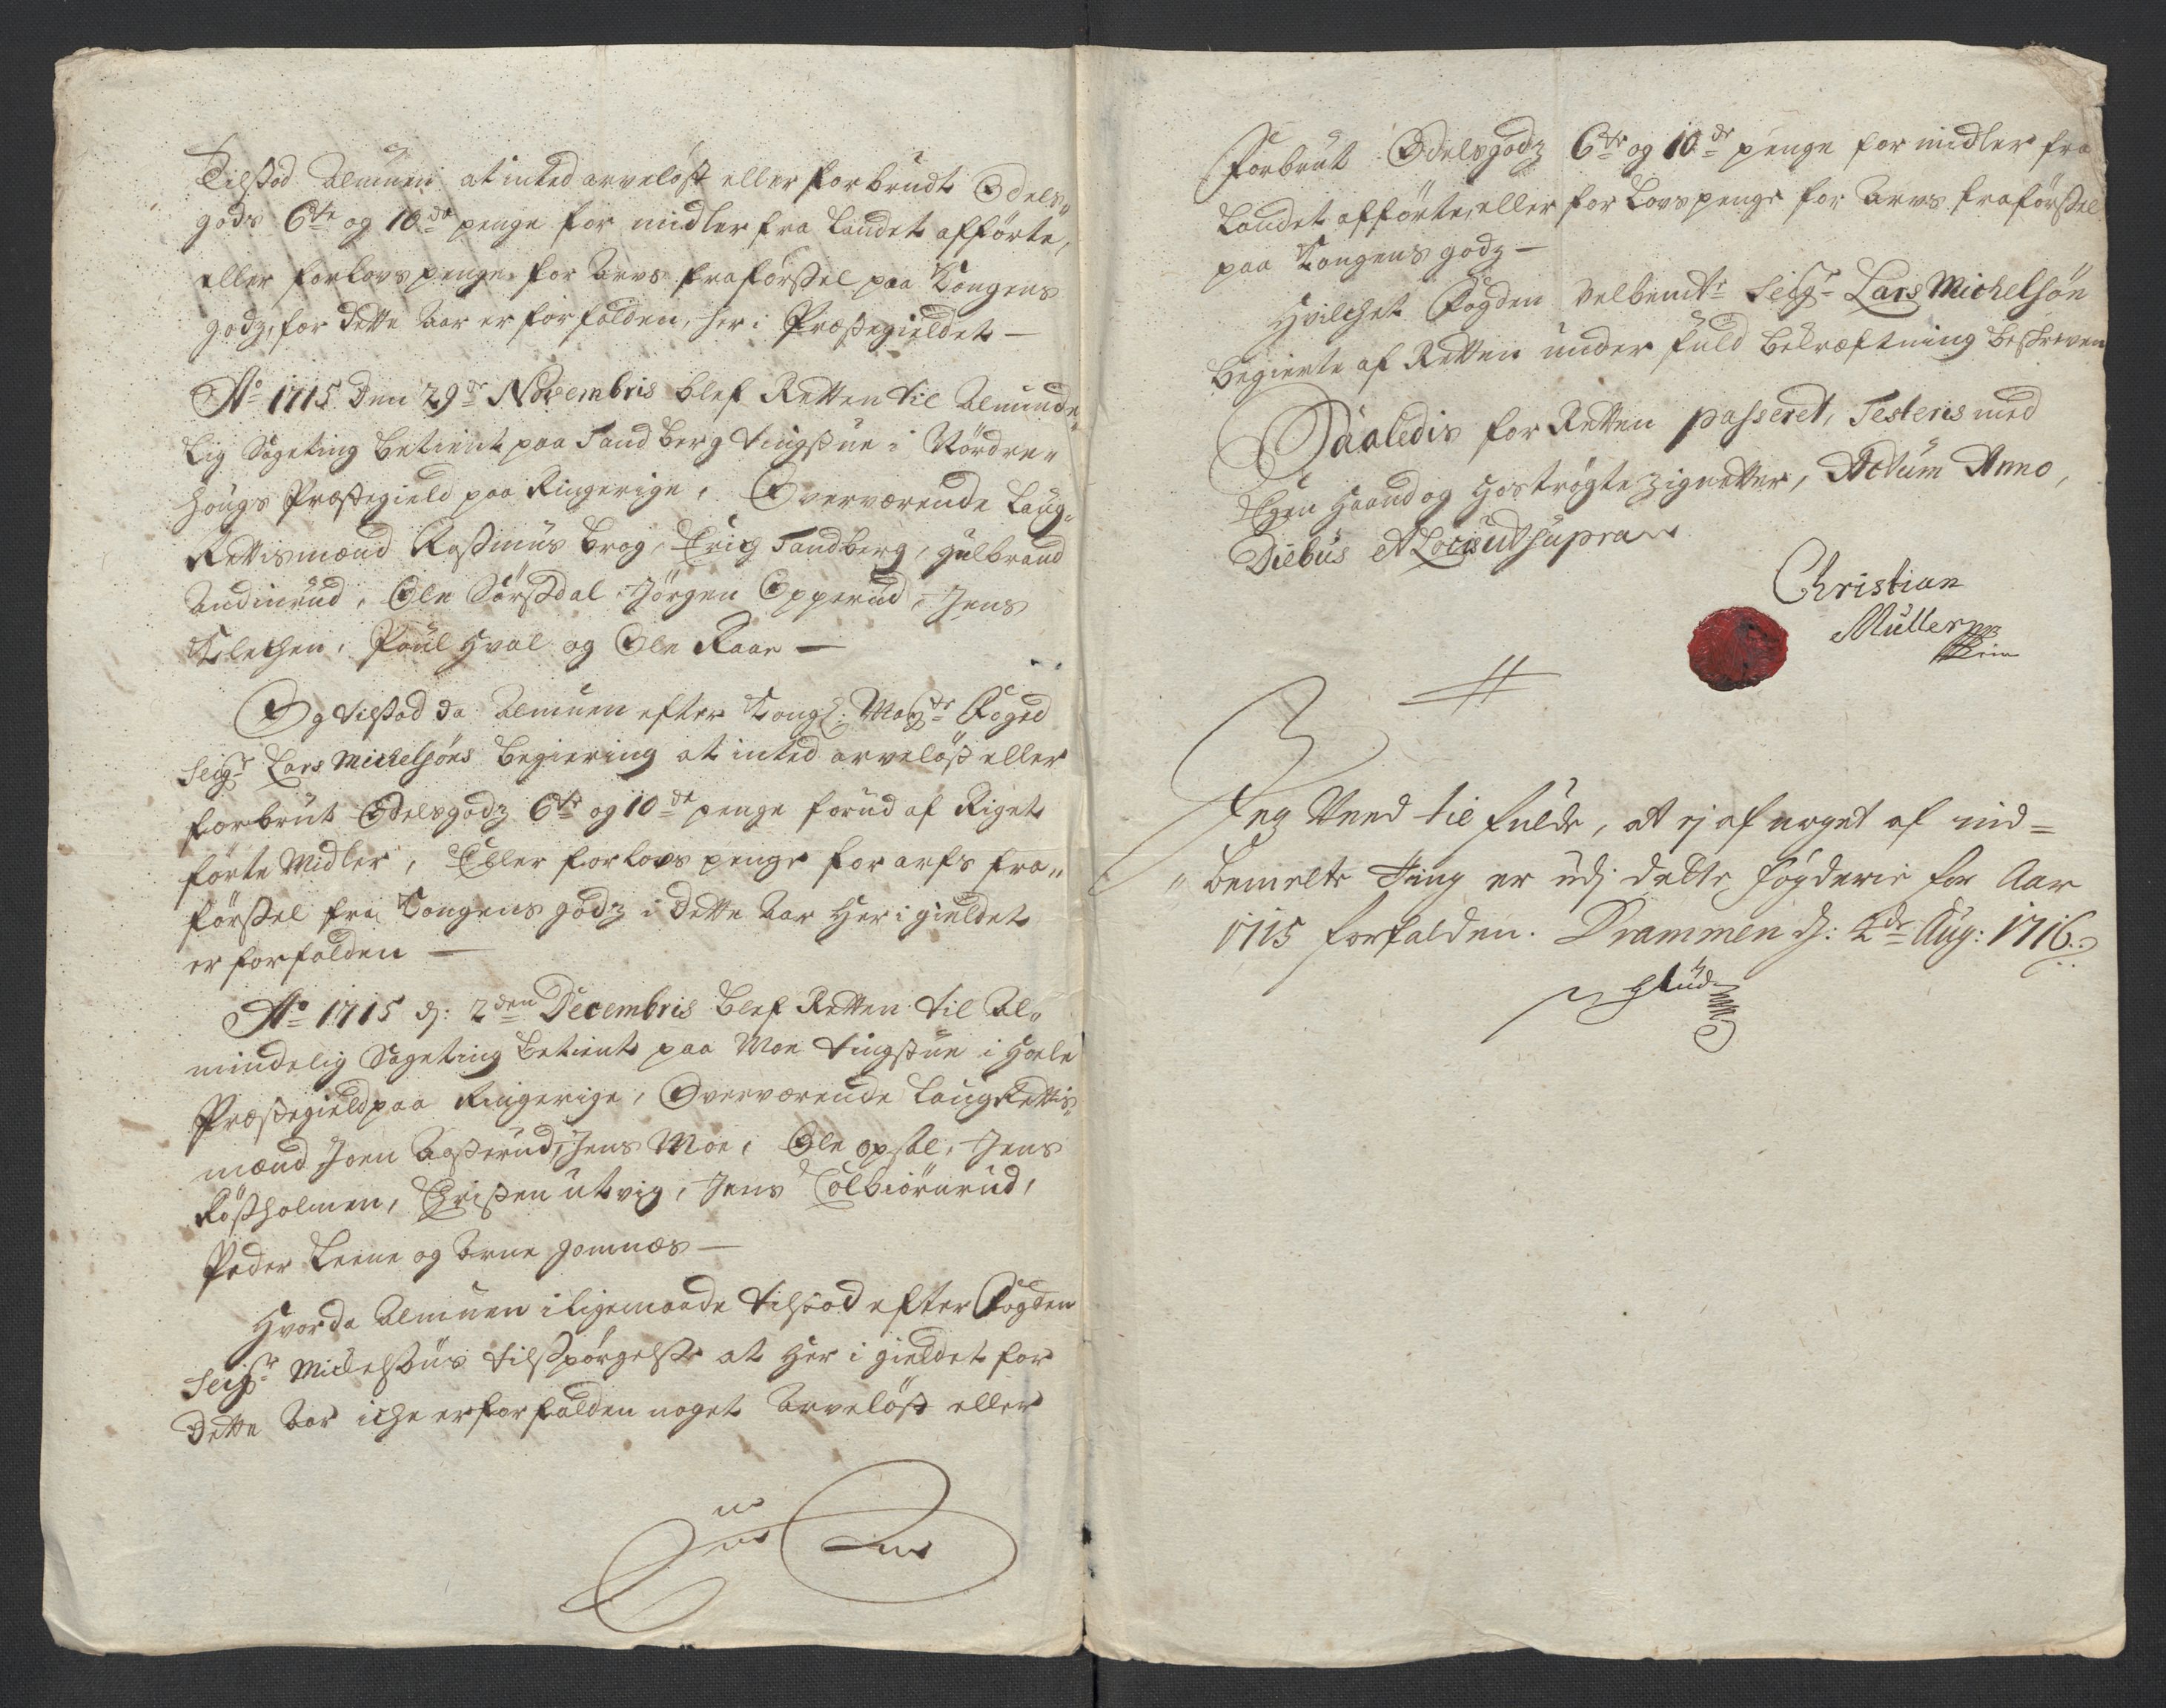 Tilstod Almuen at inted arveløst eller forbrudt Odels„
gods 6te og 10de penge for midler fra Landet afførte,
eller forlovs penge for Arvs fraførsel paa Kongens
godz, for dette Aar er forfalden, her i Præstegieldet —
Ao 1715 Den 29de Novembris blef Retten til Alminde„
lig Sageting betient paa Tandberg tingstue i Nordre„
hougs Præstegield paa Ringerige, Overværende Laug„
Rettismænd Rasmus Brog, Erich Tandberg, Gulbrand
Ole Sørsdal, Jørgen Opperud, Jens
Klechen, Poul Hval og Ole Raae —
Og tilstod da Almuen efter Kongl: Mayts Foged
Seigr Lars Michelsøns begiering at inted arveløst eller
forbrut Odelsgodz 6te og 10de penge forud af Riget
førte Midler, Eller forlovs penge for arfs fra„
førsel fra Kongens godz i dette Aar Her i gieldet
er forfalden —
Ao 1715 d: 2den Decembris blef Retten til Al„
mindelig Sageting betient paa Moe tingstue i Hole
Præstegield paa Ringerige, Overværende Laugrettis„
mænd Joen Aasterud, Jens Moe, Ole opsal, Jens
Røssholmen, Christen utvig, Jens Colbiørnrud,
Peder Leine og Arne gomnæs —
Hvor da Almuen i ligemaade tilstod efter Fogden
Seigr Michelsøns tilspørgelse at Her i gieldet for
Dette Aar iche er forfalden noget Arveløst eller
Forbrut Odelsgodz 6te og 10de penge for midler fra
Landet afførte, eller for Lovs penge for Arvs fraførsel
paa Kongens godz —
Hvilchet Fogden Velbemte Seigr Lars Michelsøn
begierte af Retten under fuld bekræftning beskreven
Saaledis for Retten passeret, Testeris med
Egen Haand og Hostrøgte zignetter, Actum Anno,
Diebus et Locis ut supra
Christian
Müller
Jeg Veed til fulde, at ej af noget af ind=
„bemelte Ting er udj dette fogderie for Aar
1715 forfalden. Drammen d: 4de Aug: 1716.